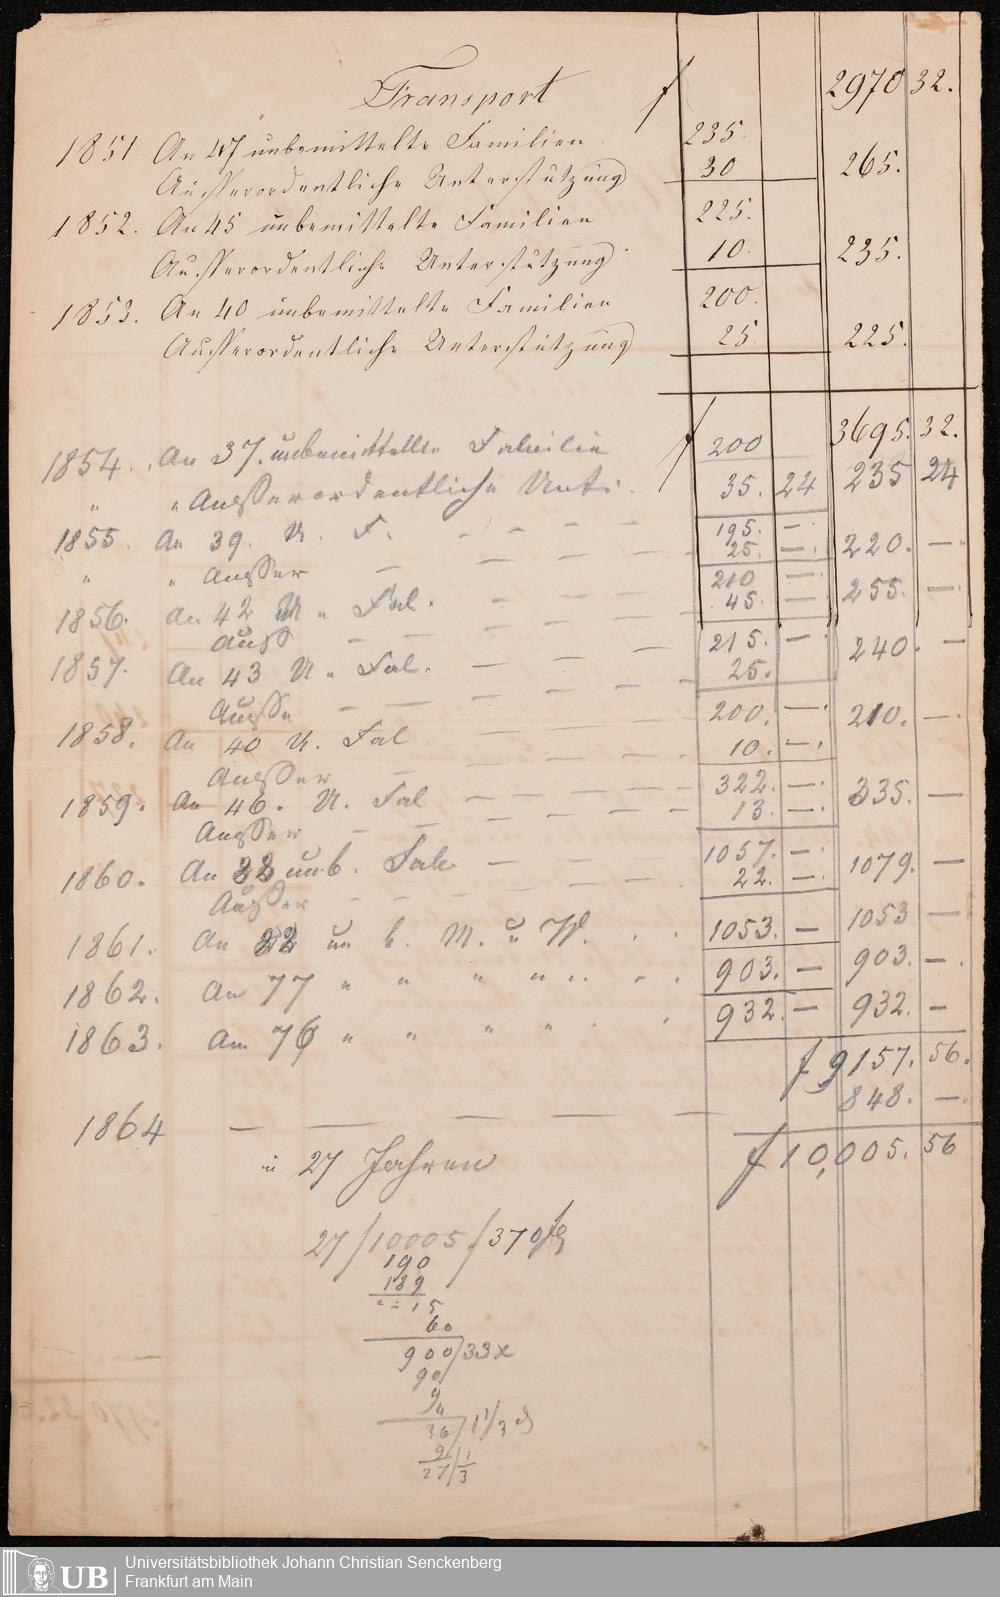 Transport f 2970 32.
1851 An 47 unbemittelte Familien 235.
Ausserordentliche Unterstützung 30 265.
1852. An 45 unbemittelte Familien 225.
Ausserordentliche Unterstützung 10. 235.
1853. An 40 unbemittelte Familien 200.
Ausserordentliche Unterstützung 25. 225.
f 3695. 32.
1854. An 37. unbemittelte Familie 200
" " Ausserordentliche Unts. 35. 24 235 24
1855. An 39. U. F. — — — — 195. —
" " Ausser — — — — 25. — 220. —
1856. An 42 U. Fal. — — — 210 —
Auss — — — — 45. — 255. —
1857. An 43 U. Fal. — — — 215. — 240. —
Ausse — — — — 25.
1858. An 40 U. Fal — — — 200. — 210. —
Ausser — — — — 10. —
1859. An 46. U. Fal — — — 322. — 335. —
Ausser — — — — 13. —
1860. An unb. Fal — — — 1057. — 1079. —
Ausser — — — — 22. —
1861. An 22 un b. M. u W. . . 1053. — 1053 —
1862. An 77 " " " " " . . 903. — 903. —
1863. An 76 " " " " . . 932. — 932. —
f 9157. 56.
848. —
1864 — — — — — —
f 10,005. 56
in 27 Jahren
27/10005/370
190
189
15
60
900/33x
90
9
36/1 1/3 d
9
27/ 1/3
UB Universitätsbibliothek Johann Christian Senckenberg
Frankfurt am Main